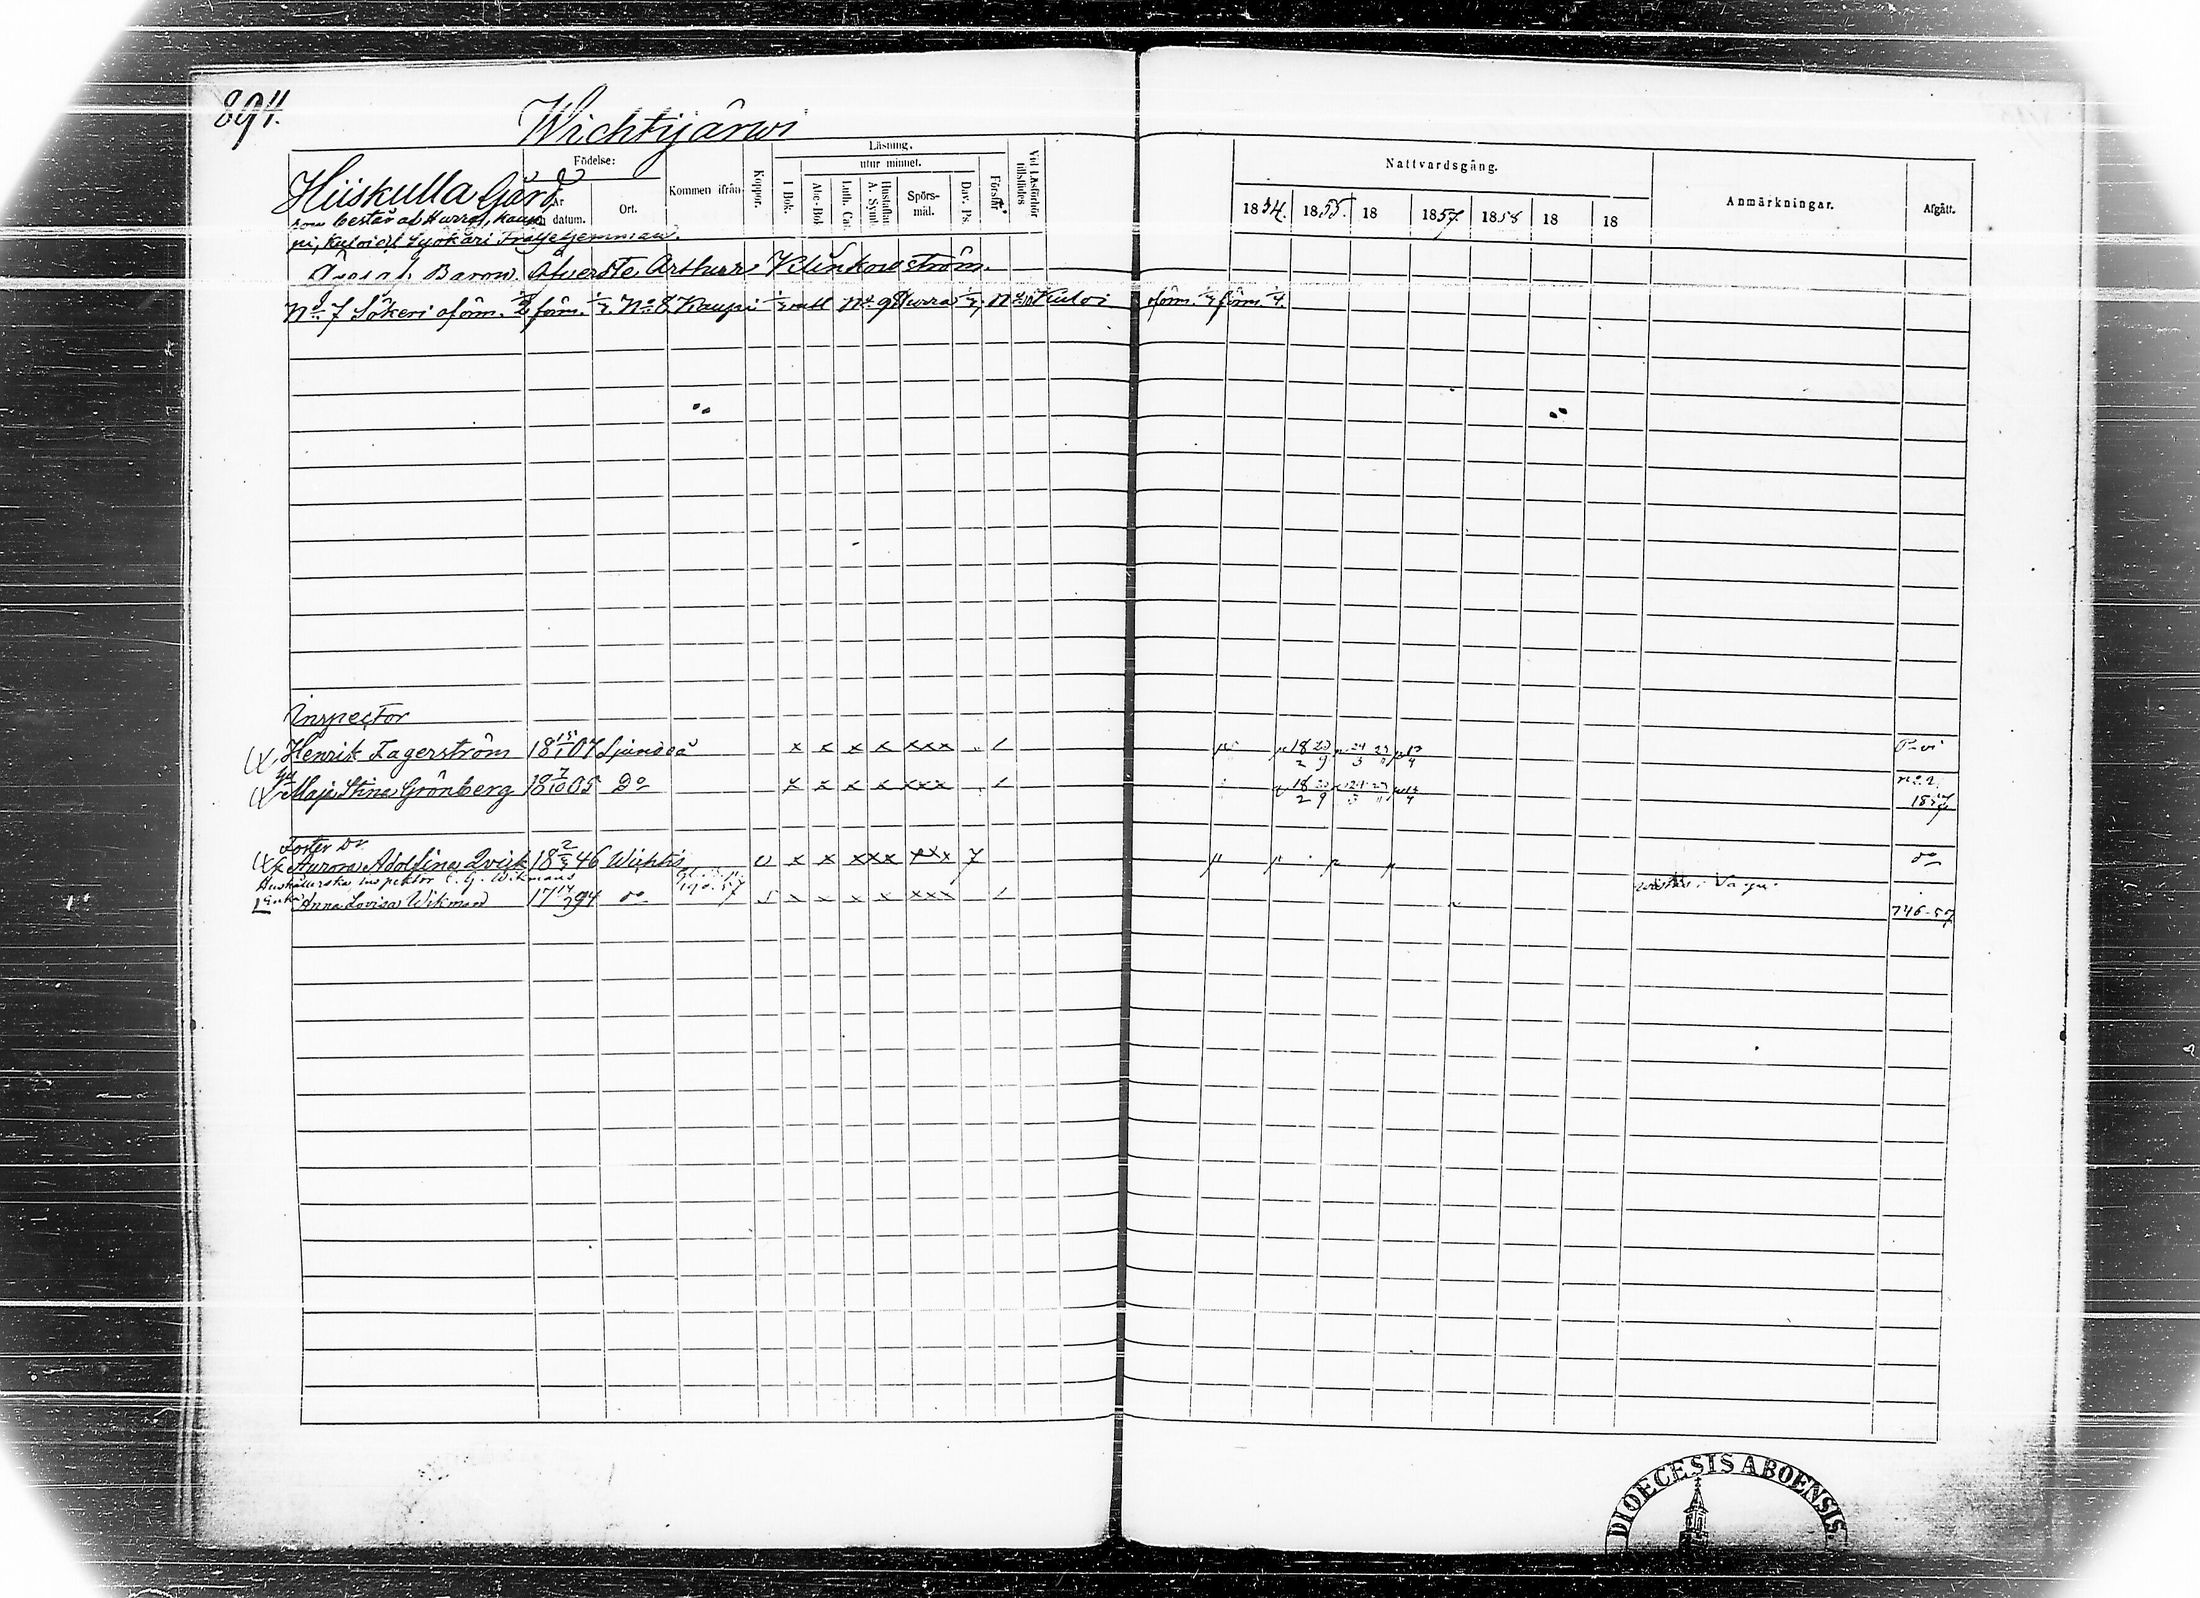 894.
Wichtijärvi
Hiiskulla Gård
som består af Hurra, Kaup
pi, Kuloi ch Syökäri Frälsehemman.
Äges af Baron Öfverste Arthur Klinkowström.
No 7 Sökeri oförm. 1/2 förm. No 8 Kaupi No 9 Hurra No 10 Kuloi oförm. förm. 1/4.
Födelse:
År
datum.
Ort.
Kommen ifrån
Koppor.
Läsning.
I Bok.
utur minnet.
Abc-Bok
Luth. Cat.
Hustaflan
A. Symb.
Spörs-
mål.
Dav. Ps.
Förstår
Vid Läsförhör
tillstädes
Nattvardsgång.
1854. 1855. 18 1857. 1858 18 18
Anmärkningar.
Afgått.
Inspector
Henrik Fagerström 18 15/1 07 Sjundeå x x x x xxx
Maja Stina Grönberg 18 7/10 05 Do x x x x xxx
no 2.
Foster Dr
Aurora Adolfina Qvick 18 2/3 46 Wichtis x x xxx xxx 7
Hushållerska inspektor C. G. Wikmans
Enka Anna Lovisa Wikman 17 94 do x x x x xxx
146-57
DIOECESIS ABOENSIS